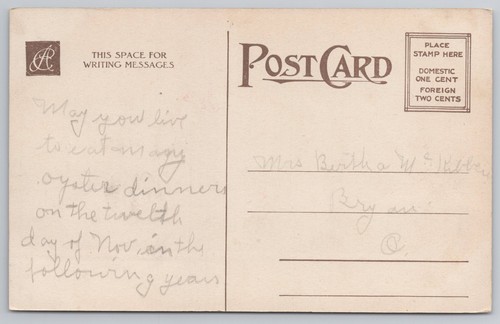 THIS SPACE FOR
WRITING MESSAGES
POST CARD
PLACE
STAMP HERE
DOMESTIC
ONE CENT
FOREIGN
TWO CENTS
May you live
to eat many
oyster dinners
on the twelfth
day of Nov. in the
following years
Mrs Bertha
Bryan
O.